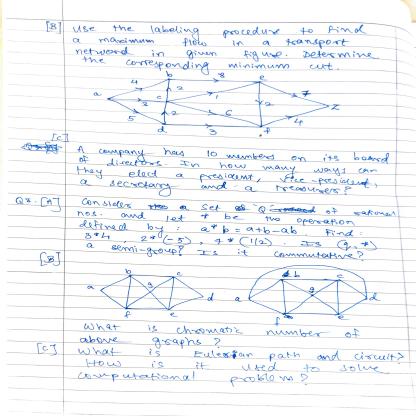 [B] Use the labeling procedure to find
a maximum flow in a transport
network in given figure. Determine
the corresponding minimum cut.
b 8 e
4 2 1 7
a 3 2 z
5 2 6 4
d 3 f
[C]
A company has 10 members on its board
of directors. In how many ways can
they elect a president, vice-president,
a secretary and a treasurer?
Q3. [A] Consider a set Q of rational
nos. and let * be the operation
defined by : a*b = a+b-ab. Find:
3*4 2*(-5), 7*(1/2). Is (Q,*)
a semi-group? Is it commutative?
[B]
b c b c
a g d a g d
f e f e
What is chromatic number of
above graphs?
[C] What is Eulerian path and circuit?
How is it used to solve
computational problem?